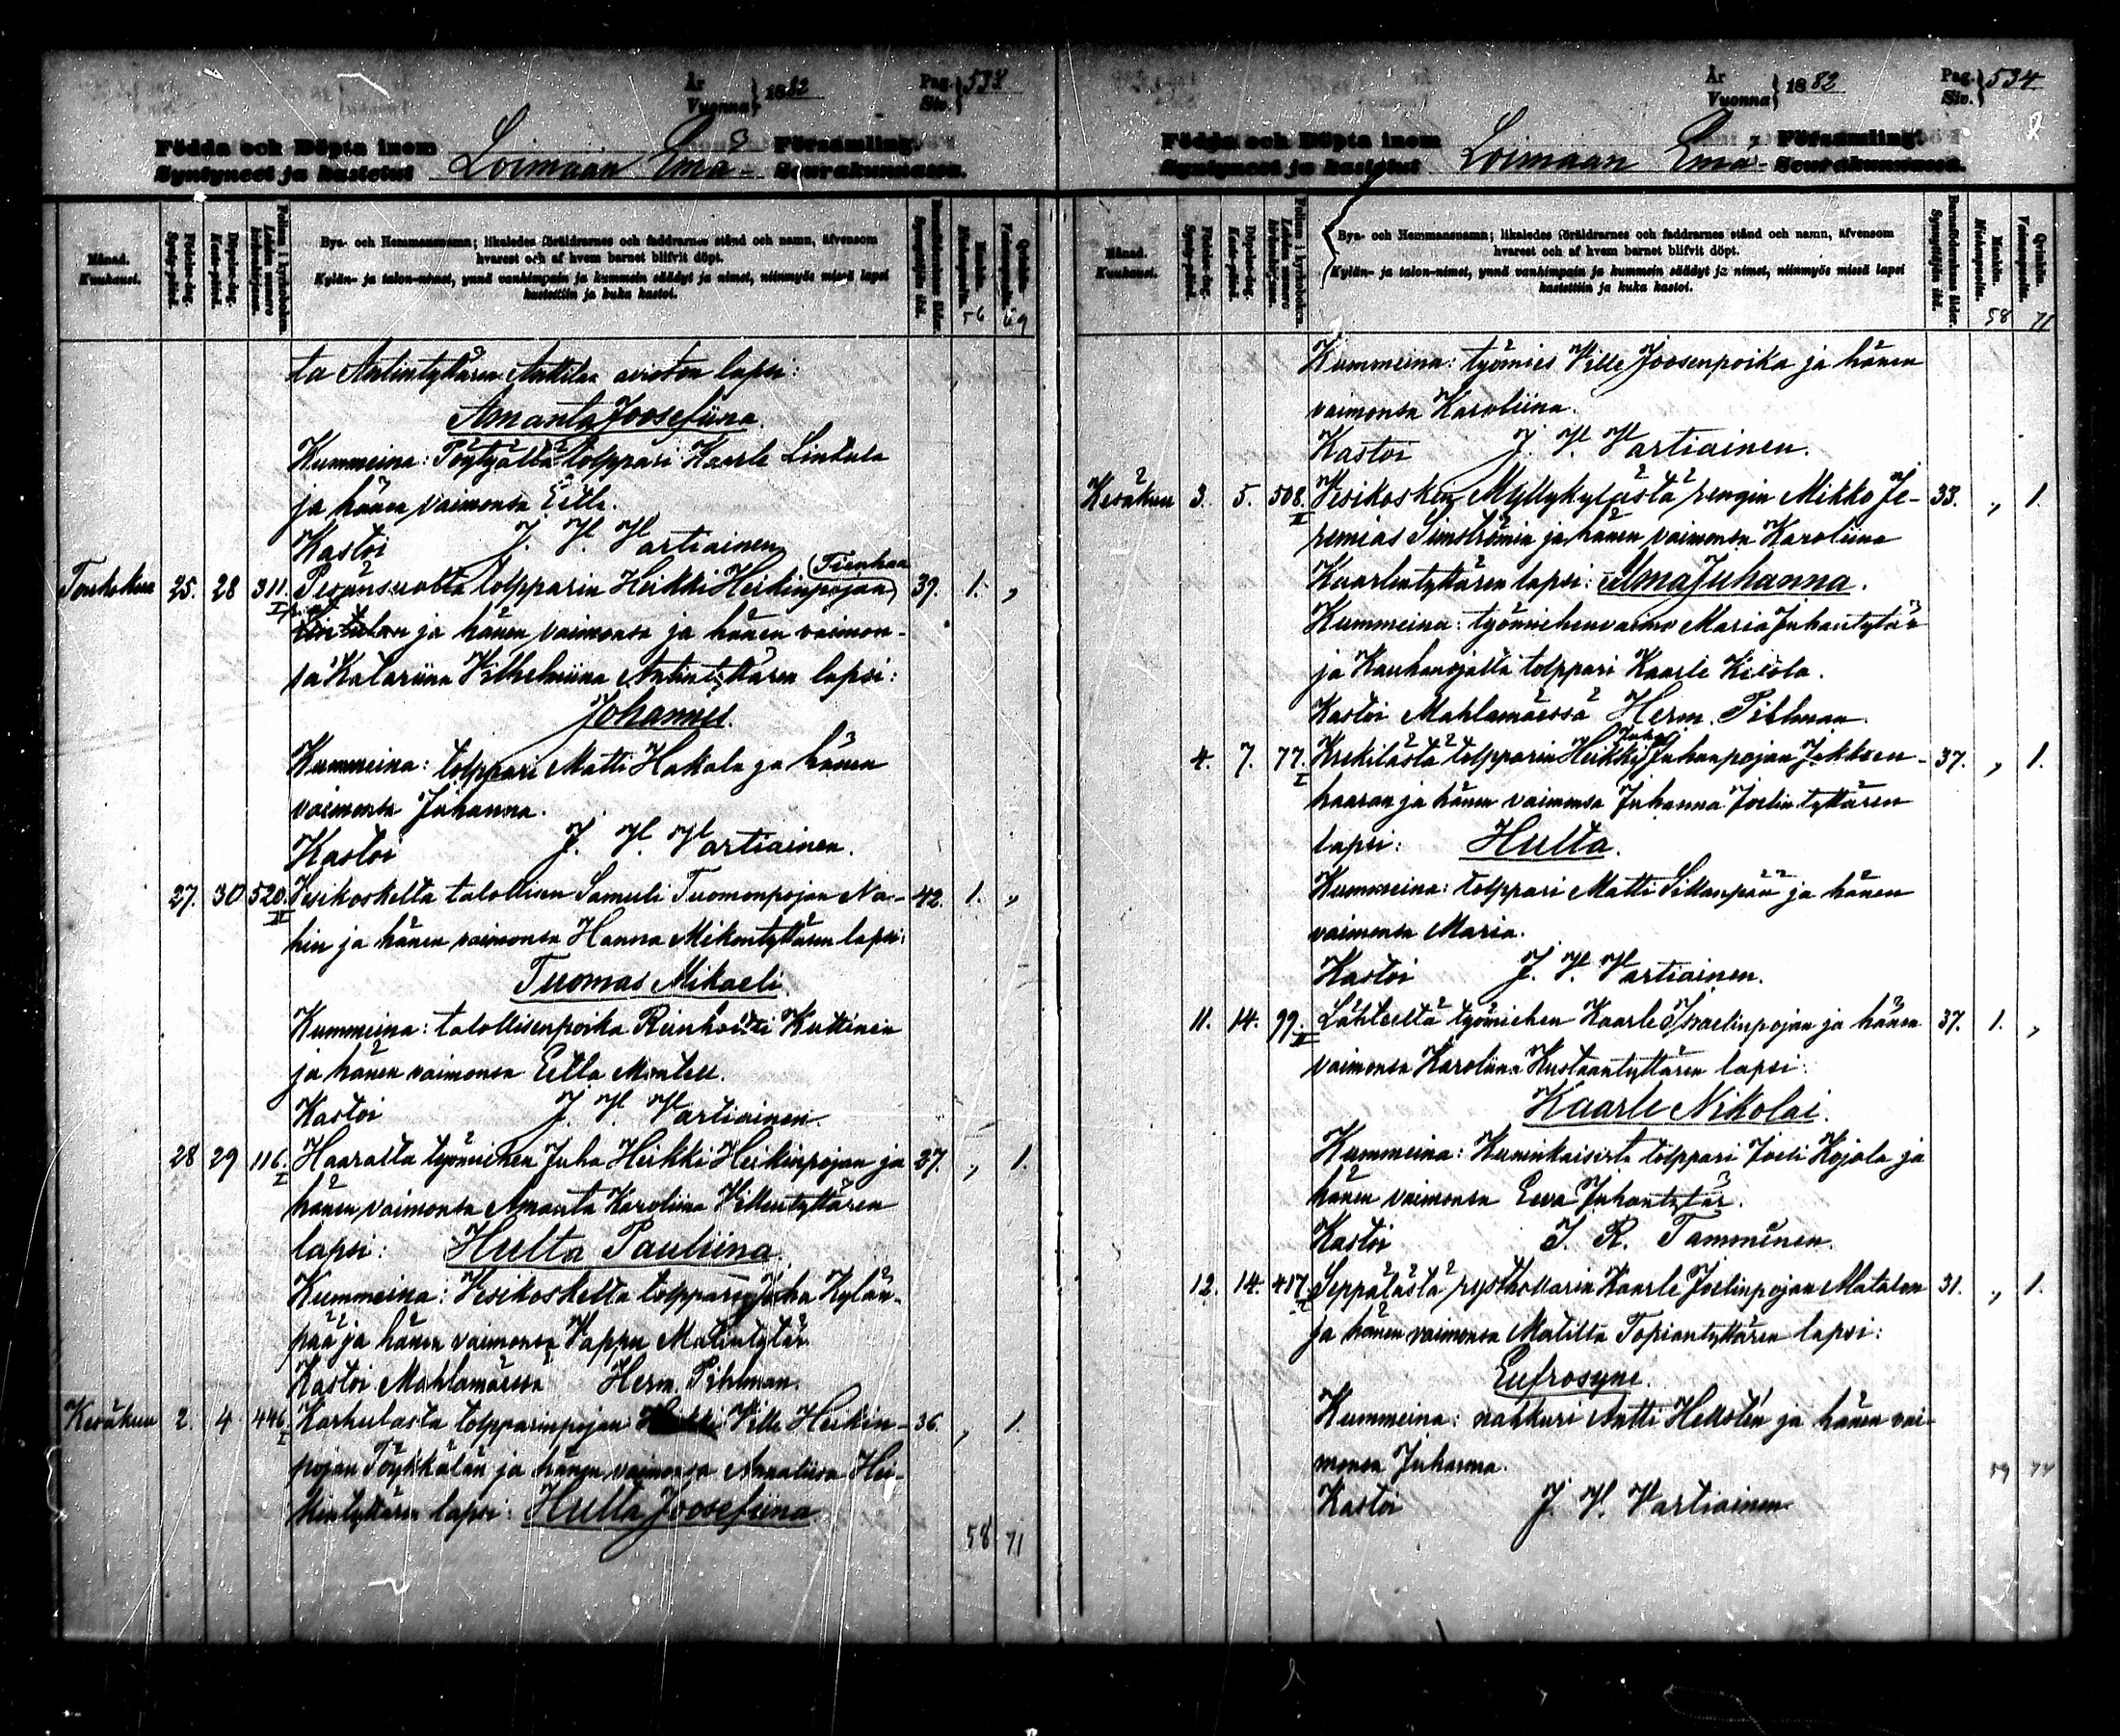 År
Vuonna } 1882
Pag.
Siv. } 533
Födda och Döpta inom
Syntyneet ja kastetut Loimaan Emä- Församling.
Seurakunnassa.
Månad.
Kuukausi.
Födelse-dag.
Synty-päivä.
Döpelse-dag.
Kaste-päivä.
Folium i kyrkoboken.
Lehden numero kirkonkirjassa.
Bya- och Hemmansnamn; likaledes föräldrarnes och faddrarnes stånd och namn, äfvensom
hvarest och af hvem barnet blifvit döpt.
Kylän- ja talon-nimet, ynnä vanhimpain ja kummein säädyt ja nimet, niinmyös missä lapsi
kastettiin ja kuka kastoi.
Barnaföderskans ålder.
Synnyttäjän ikä.
Mankön.
Miehenpuolta.
56
Qvinkön.
Vaimonpuolta.
69
ta Antintyttären Anttilan avioton lapsi:
Amanta Joosefiina.
Kummeina: Pöytyältä tolppari Kaarle Lintula
ja hänen vaimonsa Eetla.
Kastoi J. V. Vartiainen
Toukokuu 25. 28 311. I Peränsuolta tolpparin Heikki Heikinpojan (Tienhaa 39. 1. „
ja hänen vaimonsa ja hänen vaimon-
sa Katariina Vilhelmiina Antintyttären lapsi:
Johannes.
Kummeina: tolppari Matti Hakala ja hänen
vaimonsa Juhanna.
Kastoi J. V. Vartiainen.
27. 30 520. II Vesikoskelta talollisen Samuli Tuomonpojan Na- 42. 1. „
hin ja hänen vaimonsa Hanna Mikontyttären lapsi:
Tuomas Mikaeli.
Kummeina: talollisenpoika Reinholti Kuttinen
ja hänen vaimonsa Eetla
Kastoi J. V. Vartiainen.
28 29 116. I Haaralta työmiehen Juha Heikki Heikinpojan ja 37. „ 1.
hänen vaimonsa Amanta Karoliina Villentyttären
lapsi: Hulta Pauliina.
Kummeina: Vesikoskelta tolppari Juha Kylän-
pää ja hänen vaimonsa Vappu Matintytär.
Kastoi Mahlamäessä Herm. Pihlman.
Kesäkuu 2. 4 446 I Karhulasta tolpparinpojan Ville Heikin- 36. „ 1.
pojan Töykkälän ja hänen vaimonsa Annaliisa Hei-
kintyttären lapsi: Hulta Joosefiina.
58 71
År
Vuonna } 1882
Pag.
Siv. } 534
Födda och Döpta inom
Syntyneet ja kastetut Loimaan Emä- Församling.
Seurakunnassa.
Månad.
Kuukausi.
Födelse-dag.
Synty-päivä.
Döpelse-dag.
Kaste-päivä.
Folium i kyrkoboken.
Lehden numero kirkonkirjassa.
Bya- och Hemmansnamn; likaledes föräldrarnes och faddrarnes stånd och namn, äfvensom
hvarest och af hvem barnet blifvit döpt.
Kylän- ja talon-nimet, ynnä vanhimpain ja kummein säädyt ja nimet, niinmyös missä lapsi
kastettiin ja kuka kastoi.
Barnaföderskans ålder.
Synnyttäjän ikä.
Mankön.
Miehenpuolta.
58
Qvinkön.
Vaimonpuolta.
71
Kummeina: työmies Ville Joosenpoika ja hänen
vaimonsa Karoliina.
Kastoi J. V. Vartiainen.
Kesäkuu 3. 5. 508. II Vesikosken Myllykylästä rengin Mikko Je- 33. „ 1.
remias Simströmin ja hänen vaimonsa Karoliina
Kaarlentyttären lapsi: Alma Juhanna.
Kummeina: työmiehenvaimo Maria Juhantytär
ja Kauhanojalta tolppari Kaarle Kitola.
Kastoi Mahlamäessä Herm. Pihlman.
4. 7. 77. I Krekilästä tolpparin Heikki Juha Juhanpojan Jokksen- 37. „ 1.
haaran ja hänen vaimonsa Juhanna Joelintyttären
lapsi: Hulta.
Kummeina: tolppari Matti Sillanpää ja hänen
vaimonsa Maria.
Kastoi J. V. Vartiainen.
11. 14. 99. II Lähteeltä työmiehen Kaarle Israelinpojan ja hänen 37. 1. „
vaimonsa Karoliina Kustaantyttären lapsi:
Kaarle Nikolai.
Kummeina: Kuninkaisista tolppari Joeli Kojola ja
hänen vaimonsa Eeva Juhantytär.
Kastoi J. R. Tamminen.
12. 14. 417. Seppälästä rysthollarin Kaarle Joelinpojan Matalan 31. „ 1.
ja hänen vaimonsa Matilta Topiantyttären lapsi:
Eufrosyne.
Kummeina: nahkuri Antti Hellstén ja hänen vai-
monsa Juhanna.
59 74
Kastoi J. V. Vartiainen